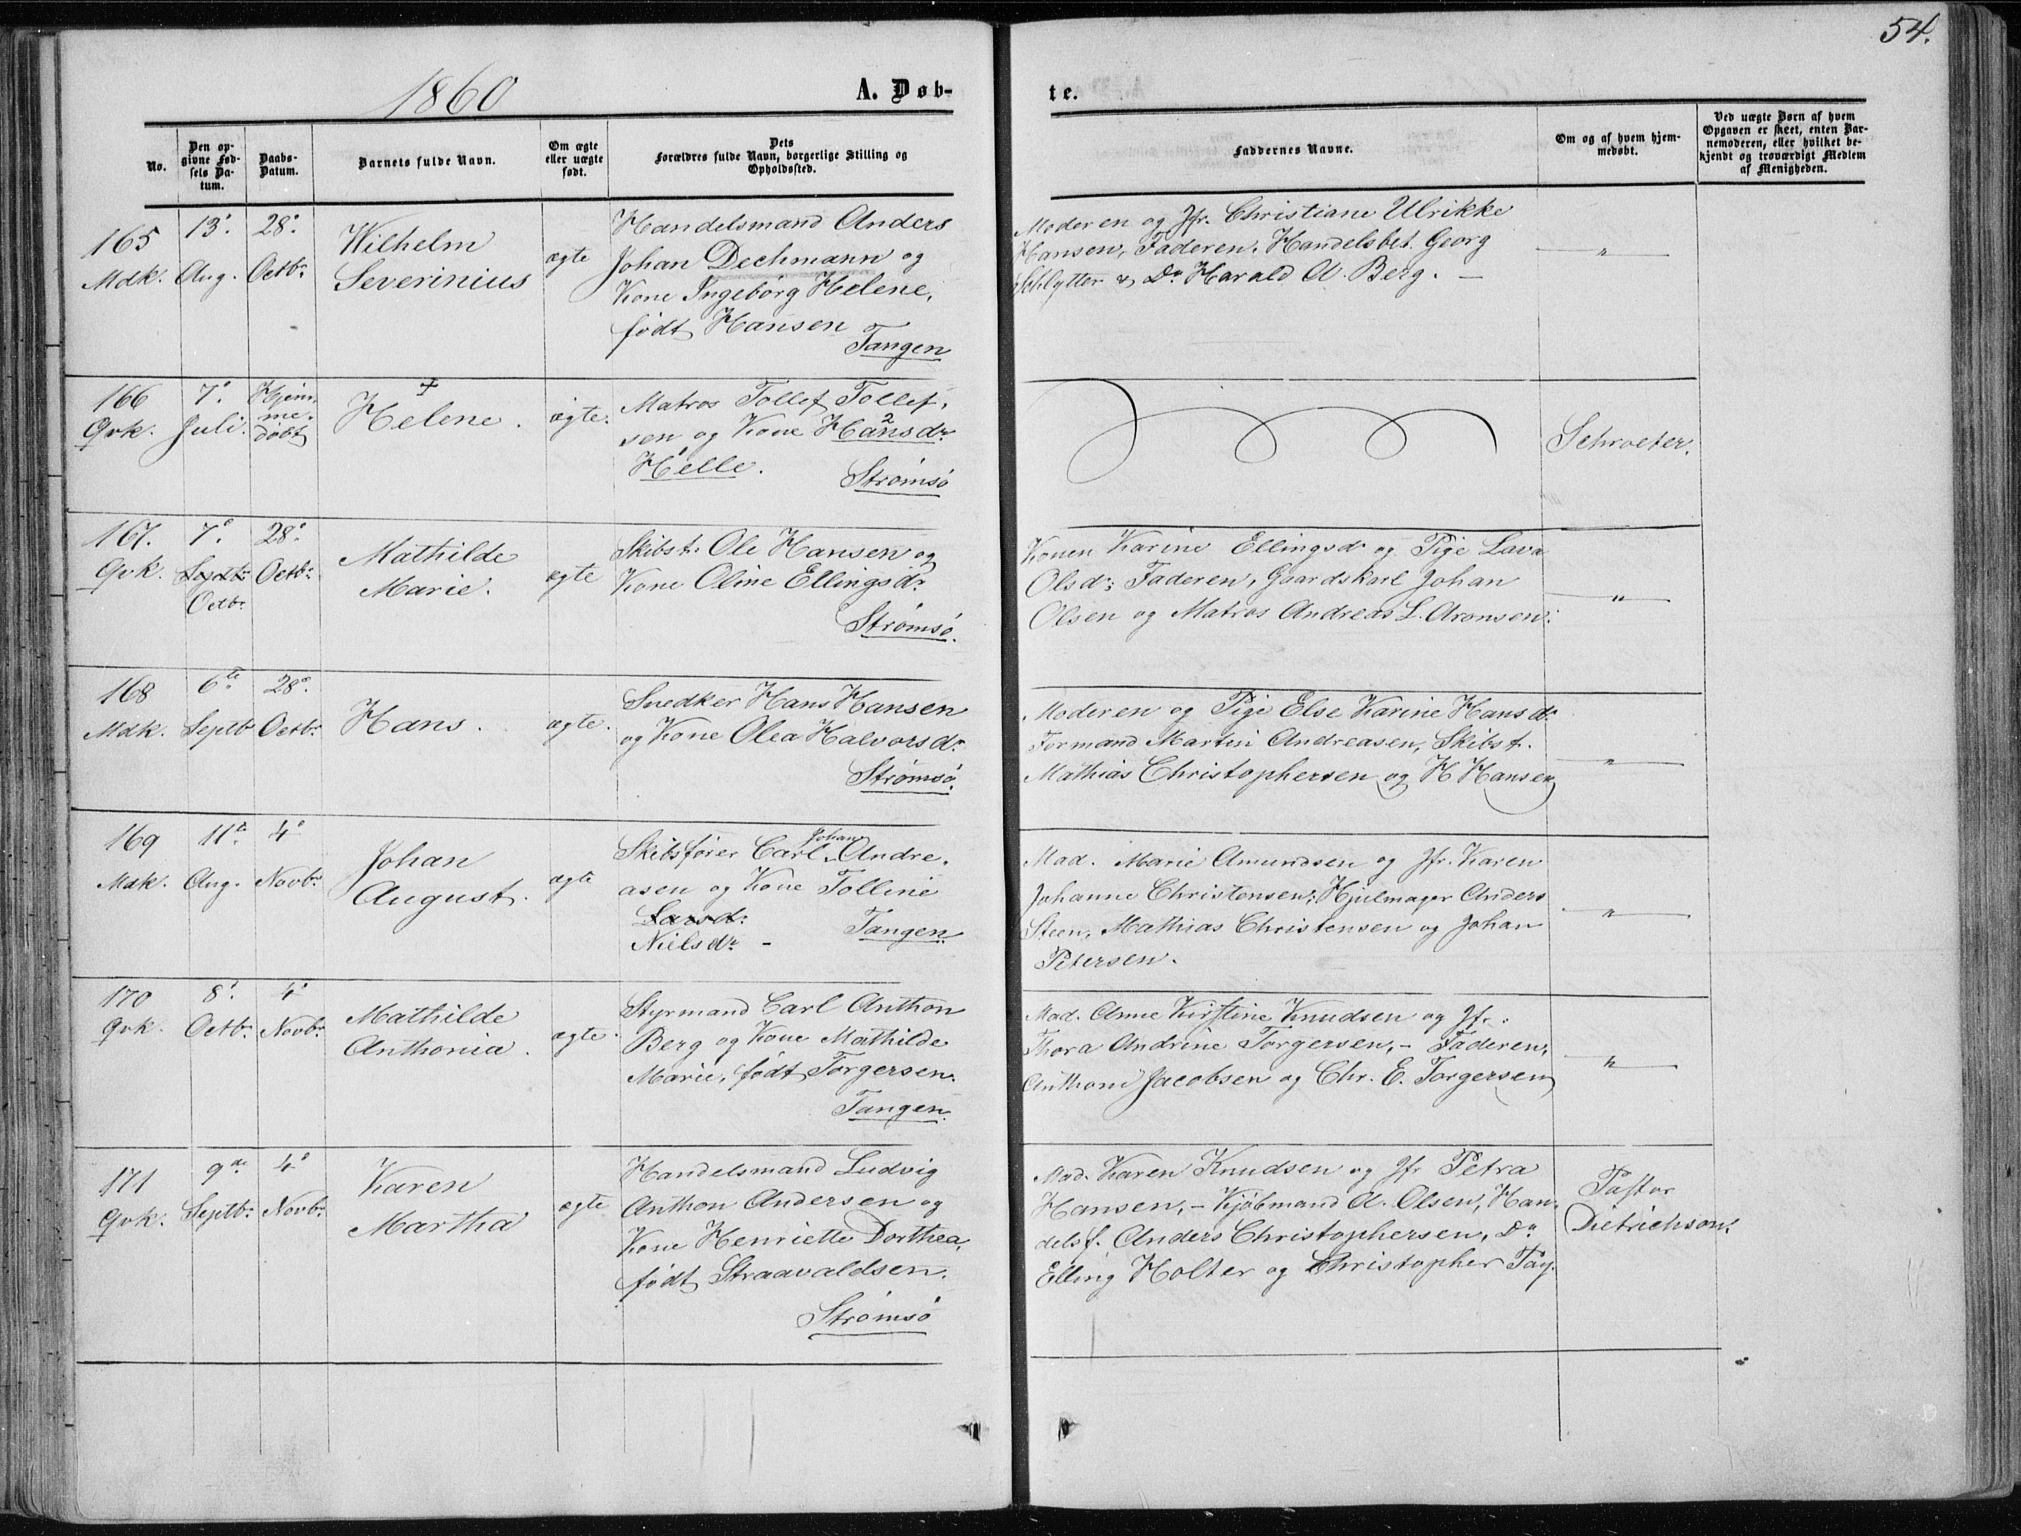 54.
1860
A. Døb-
te.
No.
Den op-
givne Fød-
sels Da-
tum.
Daabs-
Datum.
Barnets fulde Navn.
Om ægte
eller uægte
født.
Dets
Forældres fulde Navn, borgerlige Stilling og
Opholdssted.
Faddernes Navne.
Om og af hvem hjem-
medøbt.
Ved uægte Børn af hvem
Opgaven er skeet, enten Bar-
nemoderen, eller hvilket be-
kjendt og troværdigt Medlem
af Menigheden.
165
Mdk.
13.
Aug.
28.
Octbr.
Wilhelm
Severinius
ægte
Handelsmand Anders
Johan Dechmann og
Kone Ingeborg Helene,
født Hansen
Tangen
Moderen og Jfr. Christiane Ulrikke
Hansen, Faderen, Handelsbet. Georg
Schlytter & Do Harald A. Berg. –
"
166
Qvk.
7.
Juli.
Hjem-
me-
døbt
+
Helene.
ægte.
Matros Tollef Tollef-
sen og Kone Hansdr. 2
Helle. 1
Strømsø
Schroeter.
167.
Qvk.
7.
Septbr.
Octbr.
28.
Octbr.
Mathilde
Marie.
ægte
Skibst. Ole Hansen og
Kone Oline Ellingsdr.
Strømsø.
Konen Karine Ellingsdr. og Pige Lava
Olsdr; Faderen, Gaardskarl Johan
Olsen og Matros Andreas L. Aronsen.
"
168
Mdk.
6te
Septbr
28.
Octbr.
Hans.
ægte.
Snedker Hans Hansen
og Kone Olea Halvorsdr.
Strømsø.
Moderen og Pige Else Karine Hansdr.
Formand Martin Andreasen, Skibst.
Mathias Christophersen og H Hansen
"
169
Mdk.
11te
Aug.
4.
Novbr.
Johan
August.
ægte
Johan
Skibsfører Carl Andre-
asen og Kone Tolline
Larsd:
Nielsdr. –
Tangen.
Mad. Marie Amundsen og Jfr. Karen
Johanne Christensen; Hjulmager Anders
Steen, Mathias Christensen og Johan
Petersen.
"
170
Qvk.
8.
Octbr.
4.
Novbr.
Mathilde
Anthonia.
ægte.
Styrmand Carl Anthon
Berg og Kone Mathilde
Marie, født Torgersen.
Tangen.
Mad. Anne Kirstine Knudsen og Jfr.
Thora Andrine Torgersen, – Faderen,
Anthoni Jacobsen og Chr. E. Torgersen
"
171
Qvk.
9de
Septbr.
4.
Novbr.
Karen
Martha
ægte
Handelsmand Ludvig
Anthon Andersen og
Kone Henriette Dorthea,
født Straavaldsen.
Strømsø
Mad. Karen Knudsen og Jfr Petra
Hansen, – Kjøbmand A. Olsen, Han-
delsf. Anders Christophersen, Do
Elling Holter og Christopher Tay.
Pastor
Dietrichson.